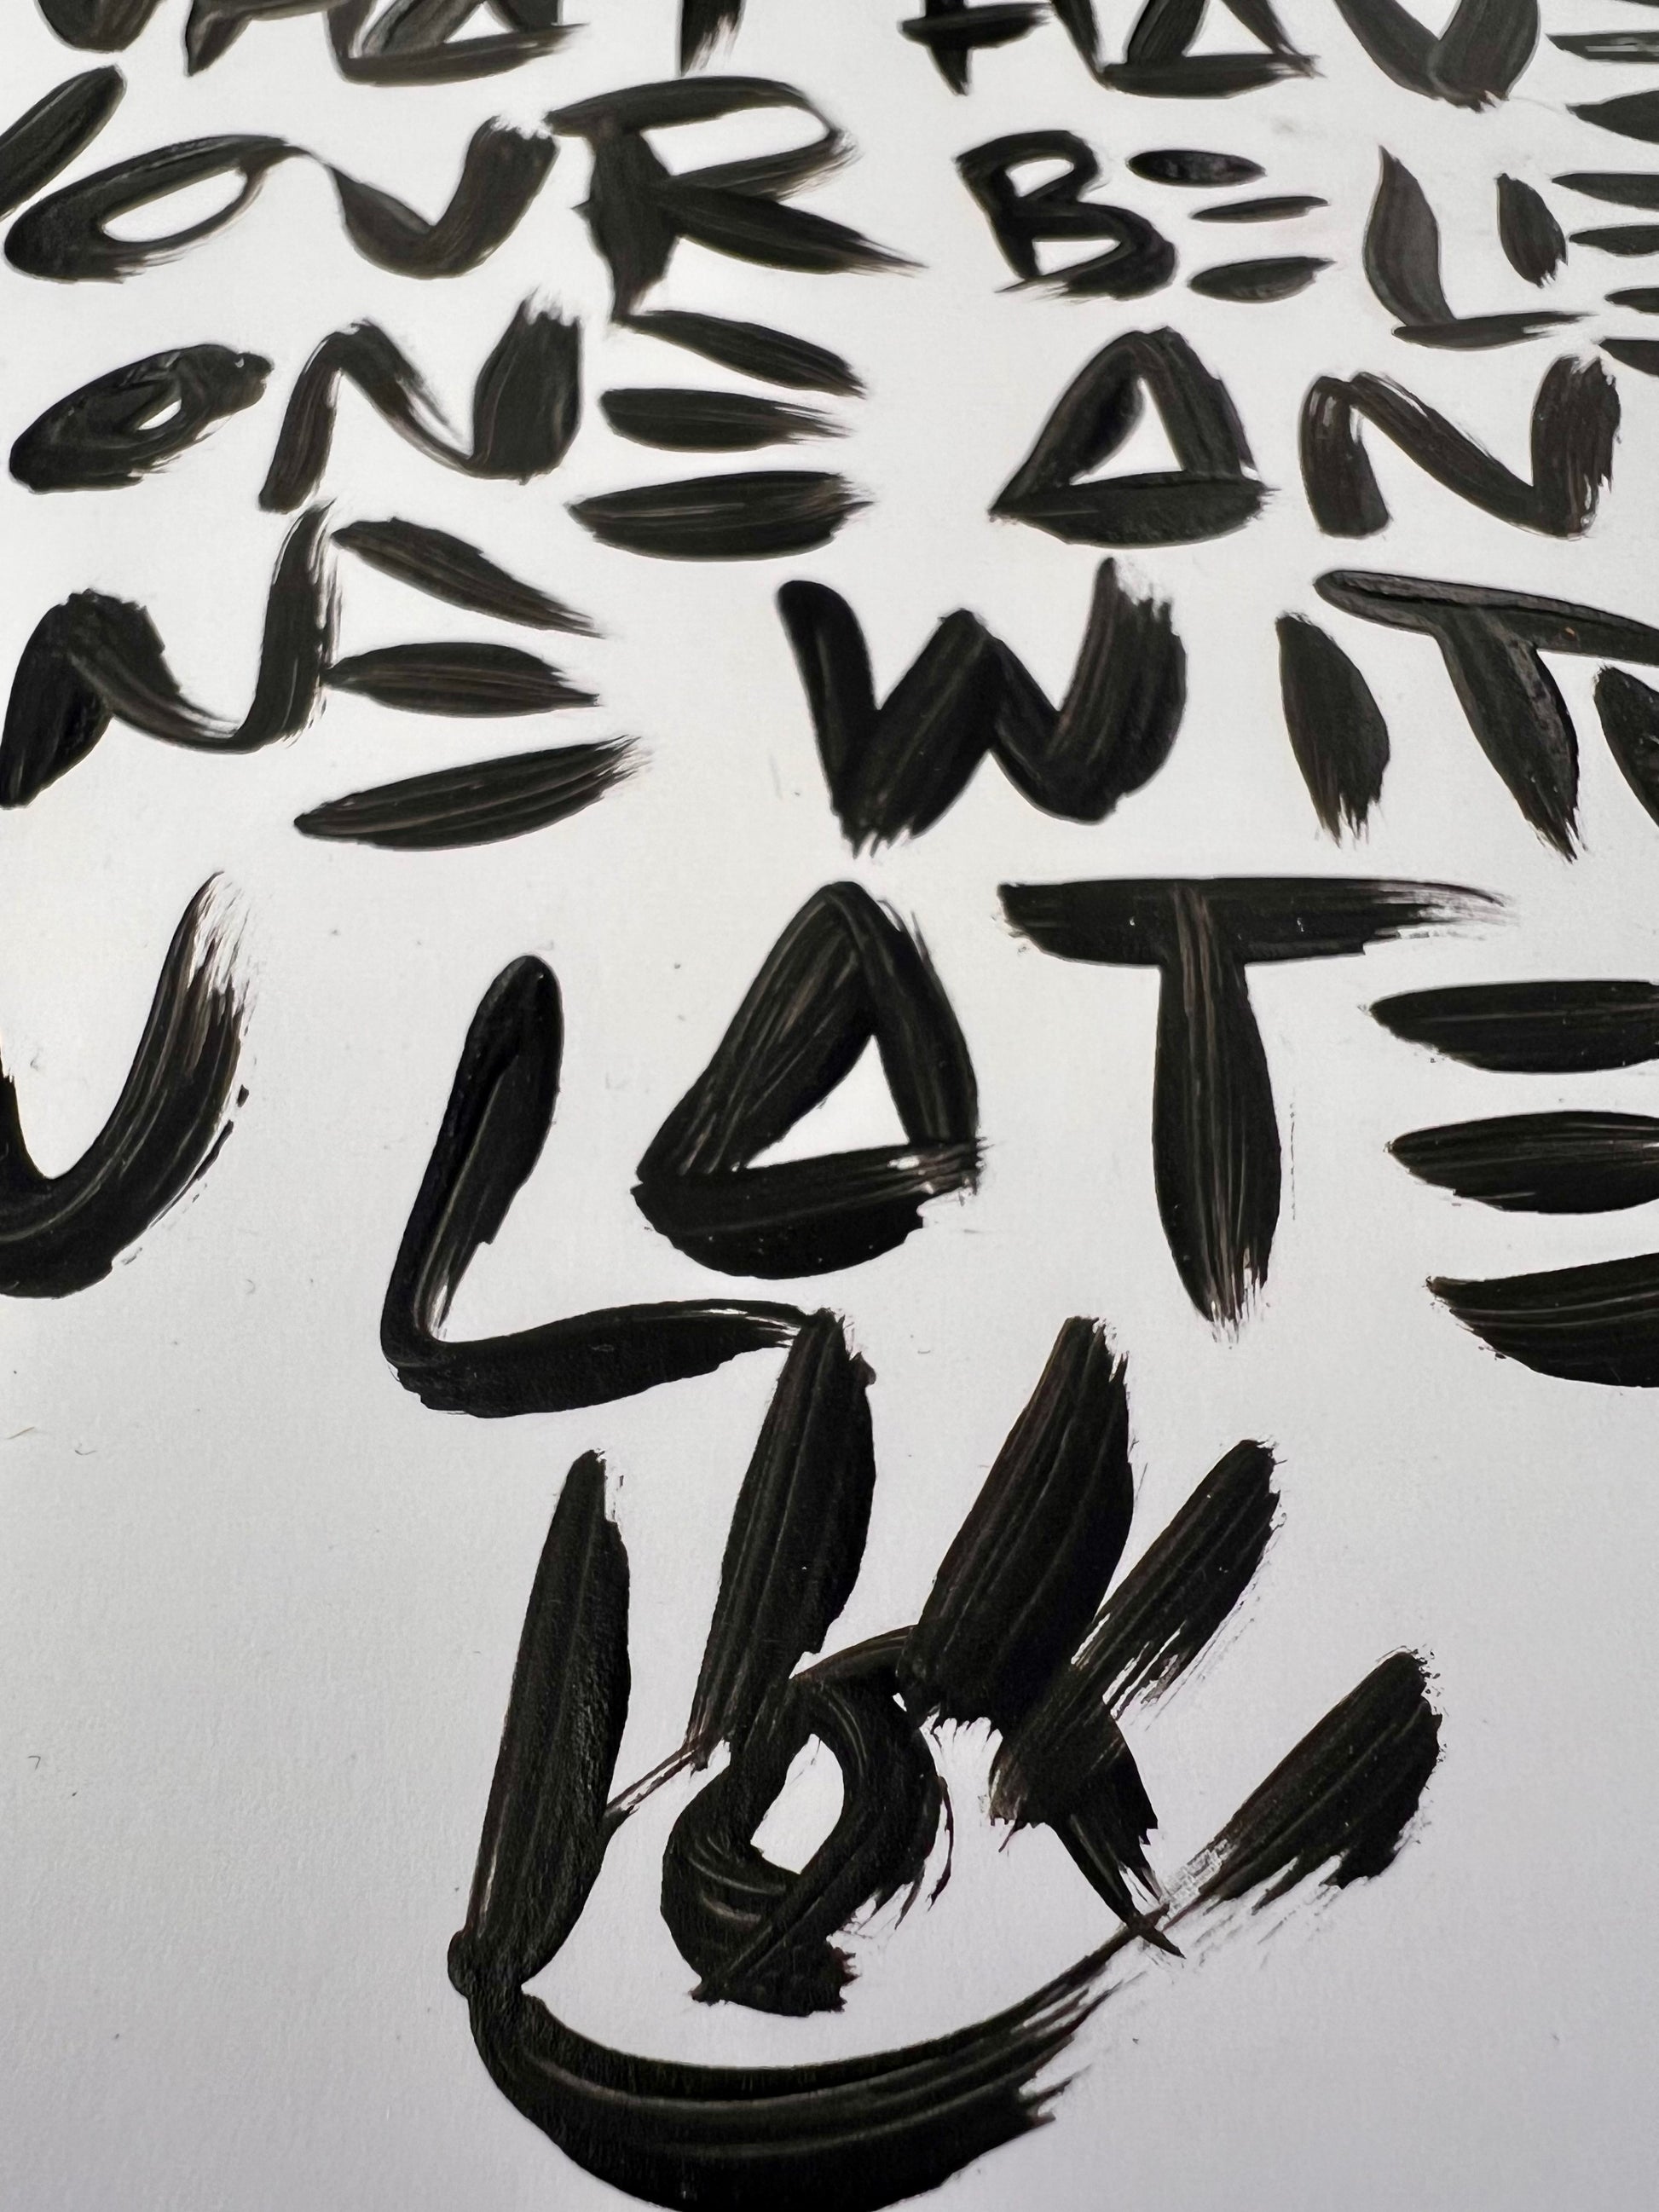 WHAT HAVE
YOUR BELIE
ONE AN
NE WITH
U LATE